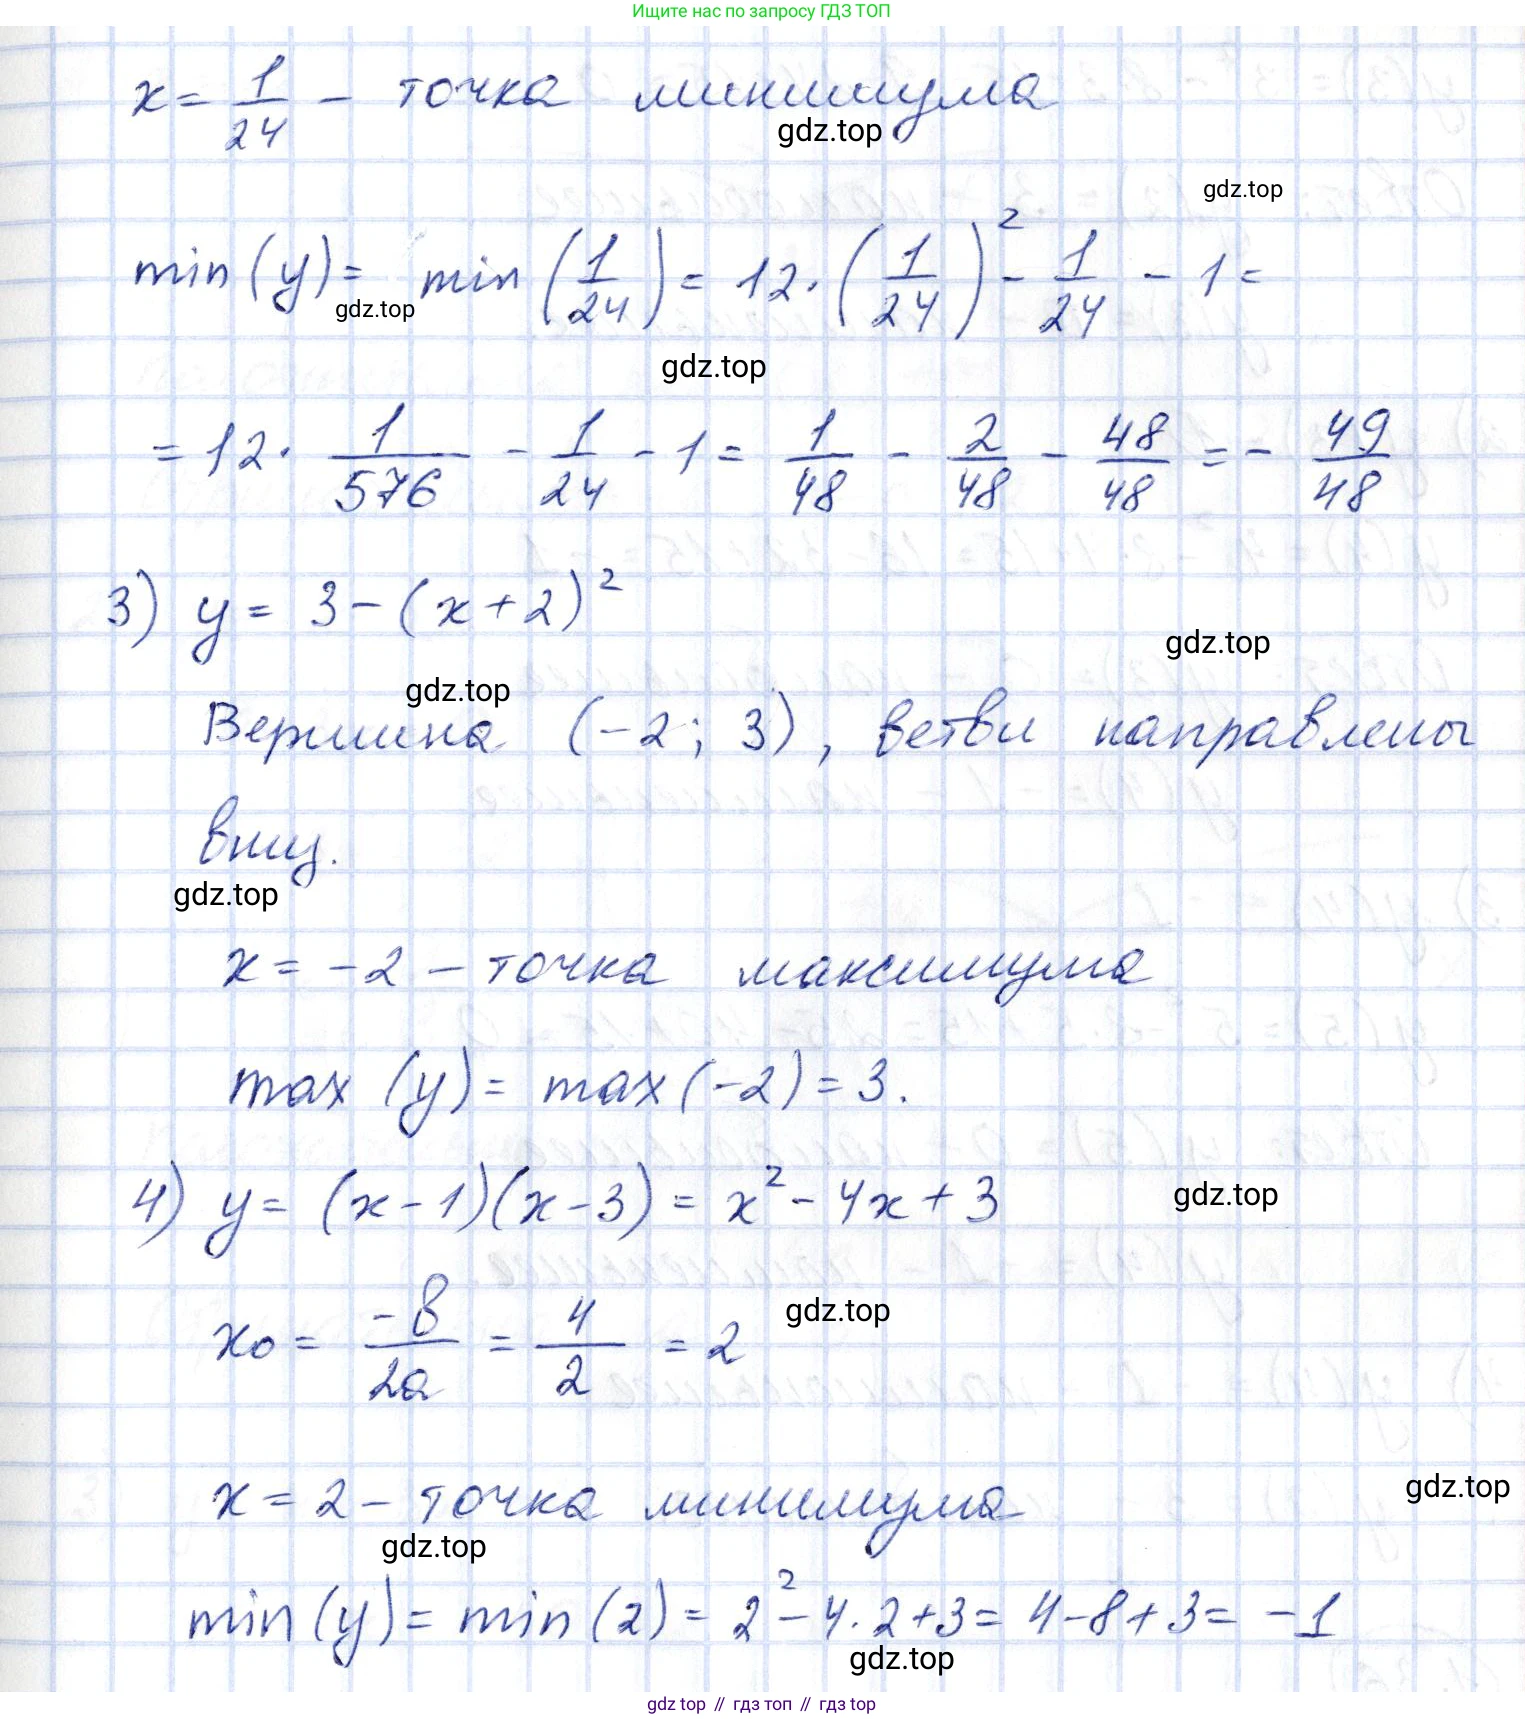 Ищите нас по запросу ГДЗ ТОП
x = 1/24 - точка минимума
gdz.top
gdz.top
min(y) = min(1/24) = 12·(1/24)² - 1/24 - 1 =
gdz.top
gdz.top
= 12· 1/576 - 1/24 - 1 = 1/48 - 2/48 - 48/48 = - 49/48
3) y = 3 - (x+2)²
gdz.top
gdz.top
Вершина (-2; 3), ветви направлены
вниз.
gdz.top
x = -2 - точка максимума
max (y) = max(-2) = 3.
4) y = (x-1)(x-3) = x² - 4x + 3
gdz.top
x₀ = -в/2а = 4/2 = 2
gdz.top
x = 2 - точка минимума
gdz.top
gdz.top
min(y) = min(2) = 2² - 4·2+3 = 4-8+3 = -1
gdz.top
gdz top // гдз топ // гдз top